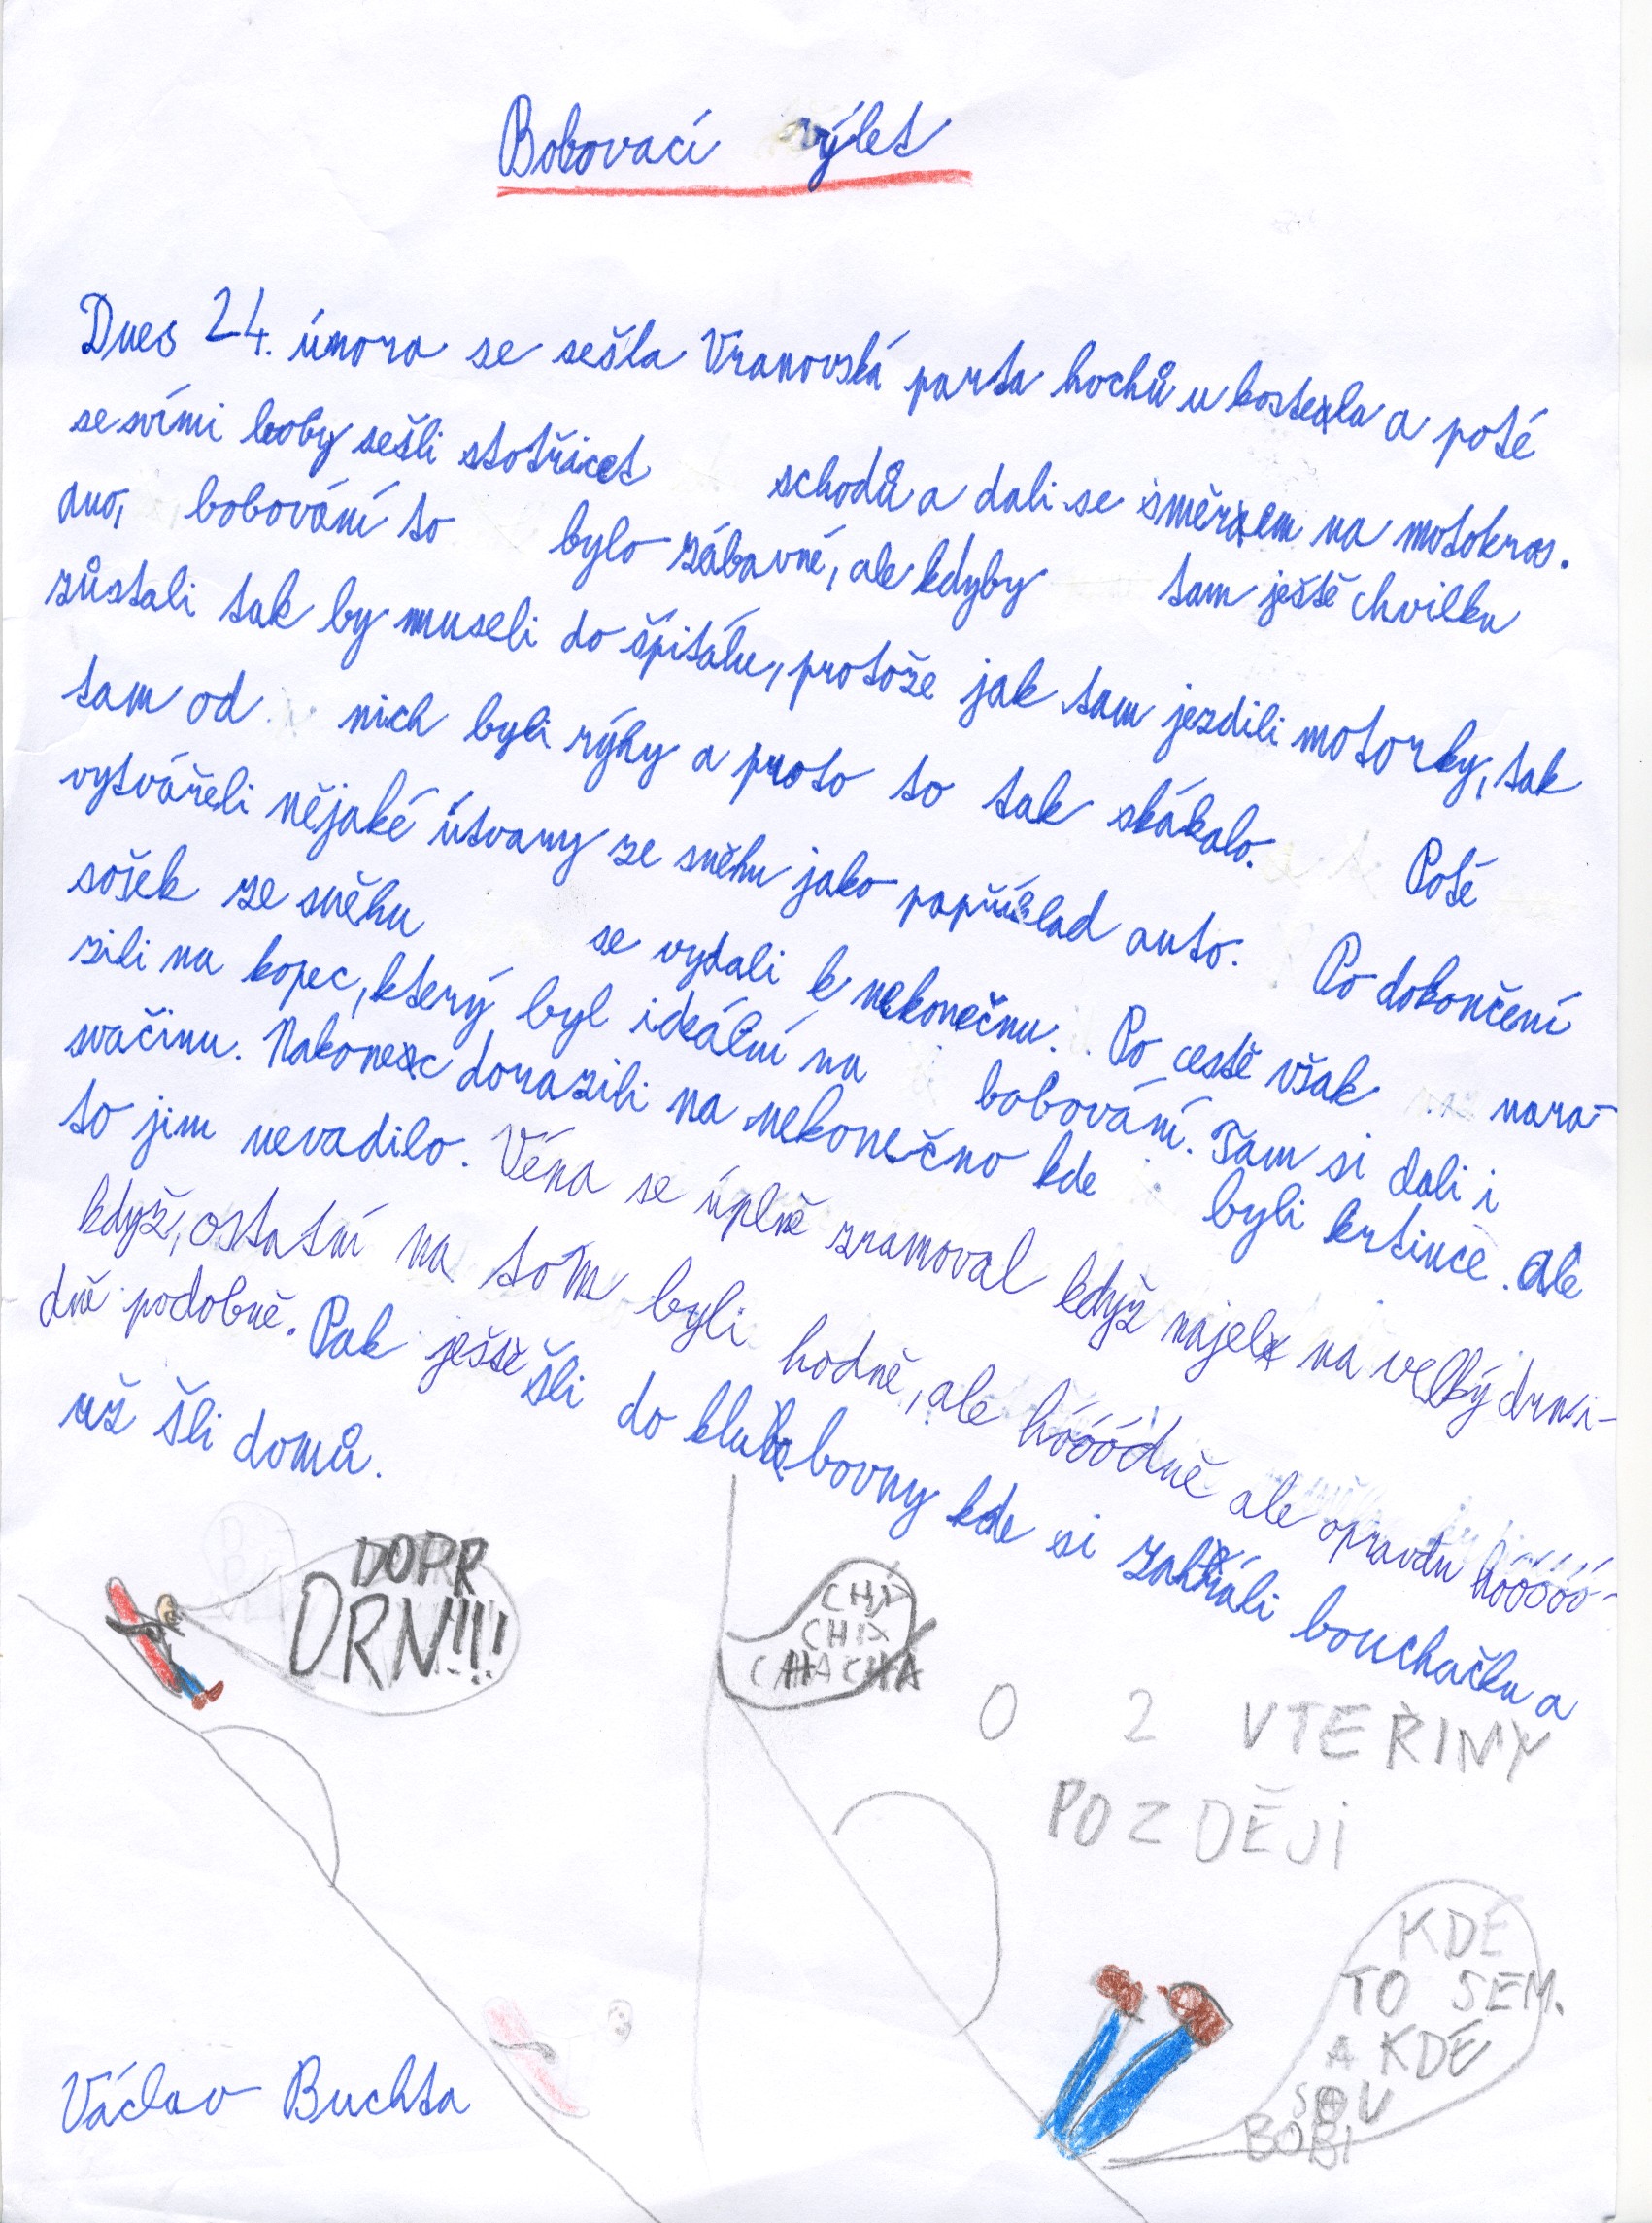 Bobovací výlet
Dnes 24. února se sešla Vranovská parta hochů u kostela a poté
se svími boby sešli stotřicet schodů a dali se směrem na motokros.
Ano, bobování to bylo zábavné, ale kdyby tam ještě chvilku
zůstali tak by museli do špitálu, protože jak tam jezdili motorky, tak
tam od nich byli rýhy a proto to tak skákalo. Poté
vytvářeli nějaké útvary ze sněhu jako popříklad auto. Po dokončení
sošek ze sněhu se vydali k nekonečnu. Po cestě však nara-
zili na kopec, který byl ideální na bobování. Tam si dali i
svačinu. Nakonec dorazili na nekonečno kde byli krtince. ale
to jim nevadilo. Véna se úplně zramoval když najel na velký drn i-
když, ostatní na tom byli hodně, ale hóóódně ale opravdu hóóóóó-
dně podobně. Pak ještě šli do klubovny kde si zahráli bouchačku a
už šli domů.
DOPR
DRN!!!
CHI
CHIX
CHACHA
O 2 VTEŘINY
POZDĚJI
KDE
TO SEM.
A KDE
SOU
BOBI
Václav Buchta